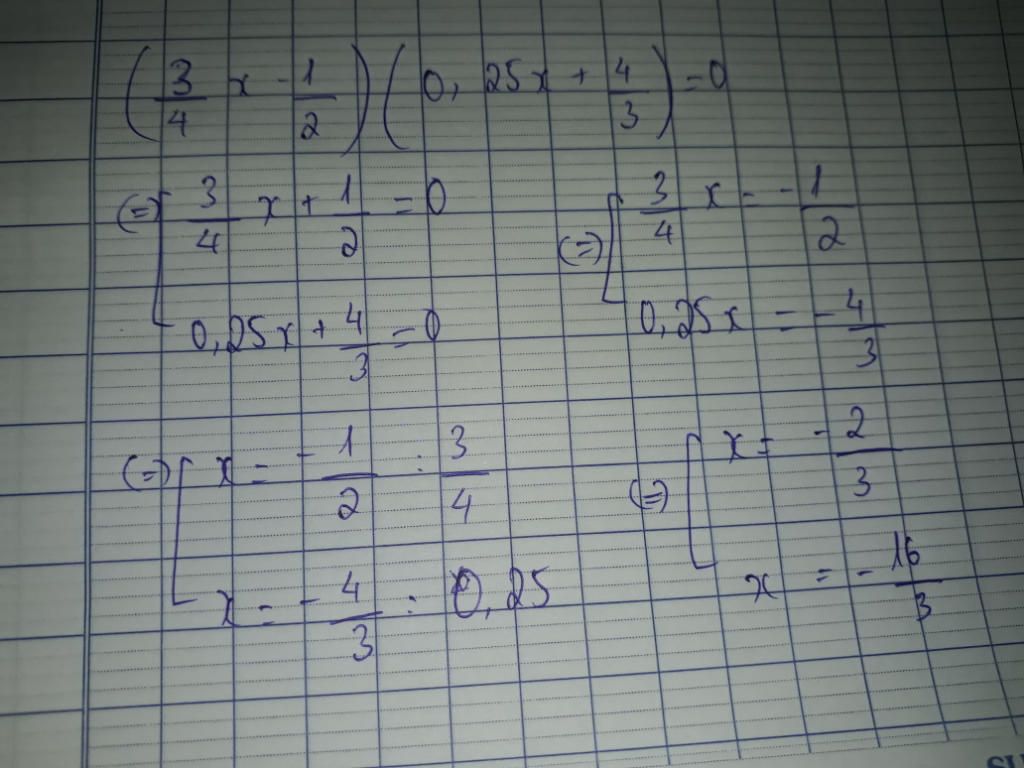 (3/4 x - 1/2)(0,25x + 4/3) = 0
(=) [ 3/4 x + 1/2 = 0
0,25x + 4/3 = 0
(=) [ 3/4 x = - 1/2
0,25x = - 4/3
(=) [ x = - 1/2 : 3/4
x = - 4/3 : 0,25
(=) [ x = - 2/3
x = - 16/3